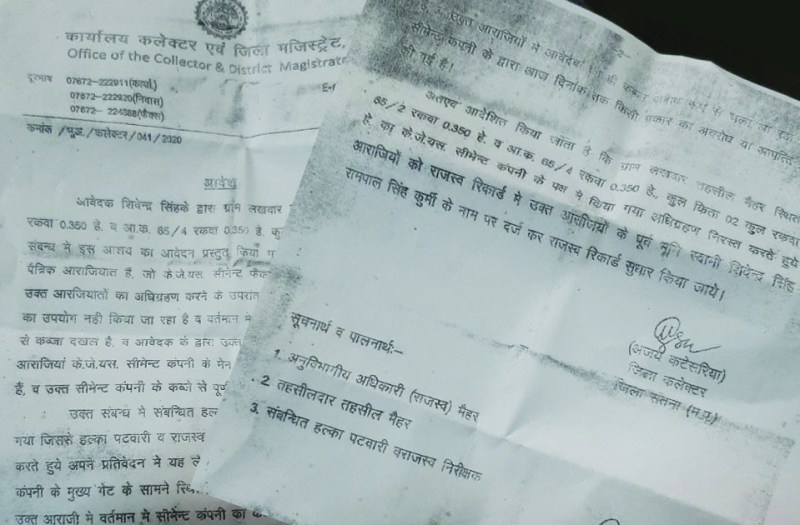 कार्यालय कलेक्टर एवं जिला मजिस्ट्रेट,
Office of the Collector & District Magistrat
दूरभाष 07672-222911(कार्या.)
07672-222920(निवास)
07672- 224588(फैक्स)
कमांक /भू.अ./कलेक्टर/041/2020
आदेश
आवेदक शिवेन्द्र सिंहके द्वारा ग्राम लखवार
रकवा 0.350 हे. व आ.क. 65/4 रकवा 0.350 हे. कु
संबन्ध मे इस आशय का आवेदन प्रस्तुत किया ग
पैत्रिक आराजियात है, जो के.जे.एस. सीमेन्ट फैक
उक्त आरजियातों का अधिग्रहण करने के उपरांत
का उपयोग नही किया जा रहा है व वर्तमान मे
से कब्जा दखल है, व आवेदक के द्वारा उक्त
आराजियां के.जे.एस. सीमेन्ट कंपनी के मेन
हैं, व उक्त सीमेन्ट कंपनी के कब्जे से पूर्ण
उक्त संबन्ध मे संबन्धित हल्
गया जिससे हल्का पटवारी व राजस्व
करते हुये अपने प्रतिवेदन मे यह ले
कंपनी के मुख्य गेट के सामने स्थि
उक्त आराजी मे वर्तमान मे सीमेन्ट कंपनी का क
-2-
उक्त आराजियों मे आवेदक
सीमेन्ट कंपनी के द्वारा आज दिनांक तक किसी प्रकार का अवरोध या आपत्ति
की गई है।
अतएव आदेशित किया जाता है कि ग्राम लखवार तहसील मैहर स्थित
65/2 रकवा 0.350 हे. व आ.क. 65/4 रकवा 0.350 हे. कुल किता 02 कुल रकवा
हे. का के.जे.एस. सीमेन्ट कंपनी के पक्ष मे किया गया अधिग्रहण निरस्त करते हुये
आराजियों को राजस्व रिकार्ड मे उक्त आराजियों के पूर्व भूमि स्वामी शिवेन्द्र सिंह
रामपाल सिंह कुर्मी के नाम पर दर्ज कर राजस्व रिकार्ड सुधार किया जाये।
(अजय कटेसरिया)
जिला कलेक्टर
जिला सतना (म.प्र.)
सूचनार्थ व पालनार्थ:-
1. अनुविभागीय अधिकारी (राजस्व) मैहर
2 तहसीलदार तहसील मैहर
3. संबन्धित हल्का पटवारी वराजस्व निरीक्षक